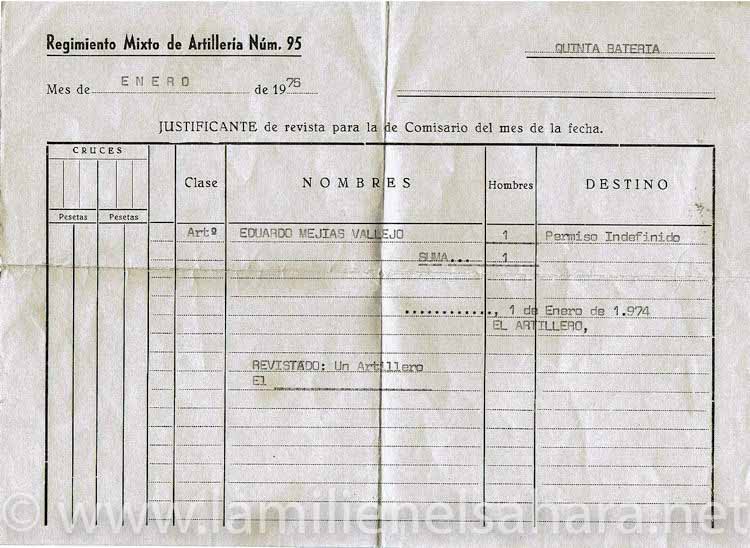 Regimiento Mixto de Artillería Núm. 95
QUINTA BATERIA
Mes de ENERO de 1975
JUSTIFICANTE de revista para la de Comisario del mes de la fecha.
CRUCES
Clase NOMBRES Hombres DESTINO
Pesetas Pesetas
Artº EDUARDO MEJIAS VALLEJO 1 Permiso Indefinido
SUMA... 1
............, 1 de Enero de 1.974
EL ARTILLERO,
REVISTADO: Un Artillero
El
© www.lamilienelsahara.net